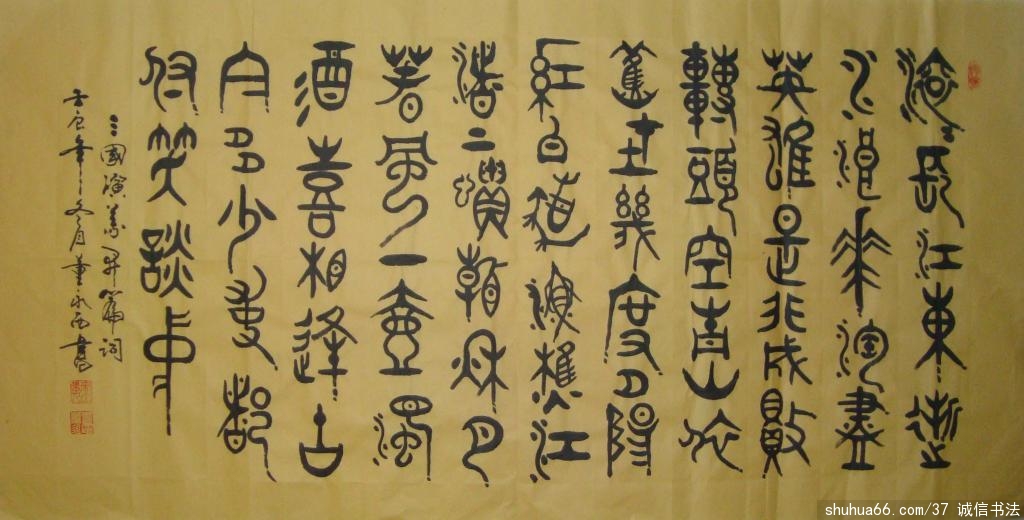 滾〻長江東逝
水浪花淘盡
英雄是非成敗
轉頭空青山依
舊在幾度夕陽
紅白髮漁樵江
渚上慣看秋月
春風一壺濁
酒喜相逢古
今多少事都
付笑談中
三國演義開篇詞
年冬月董書
shuhua66.com/37 诚信书法